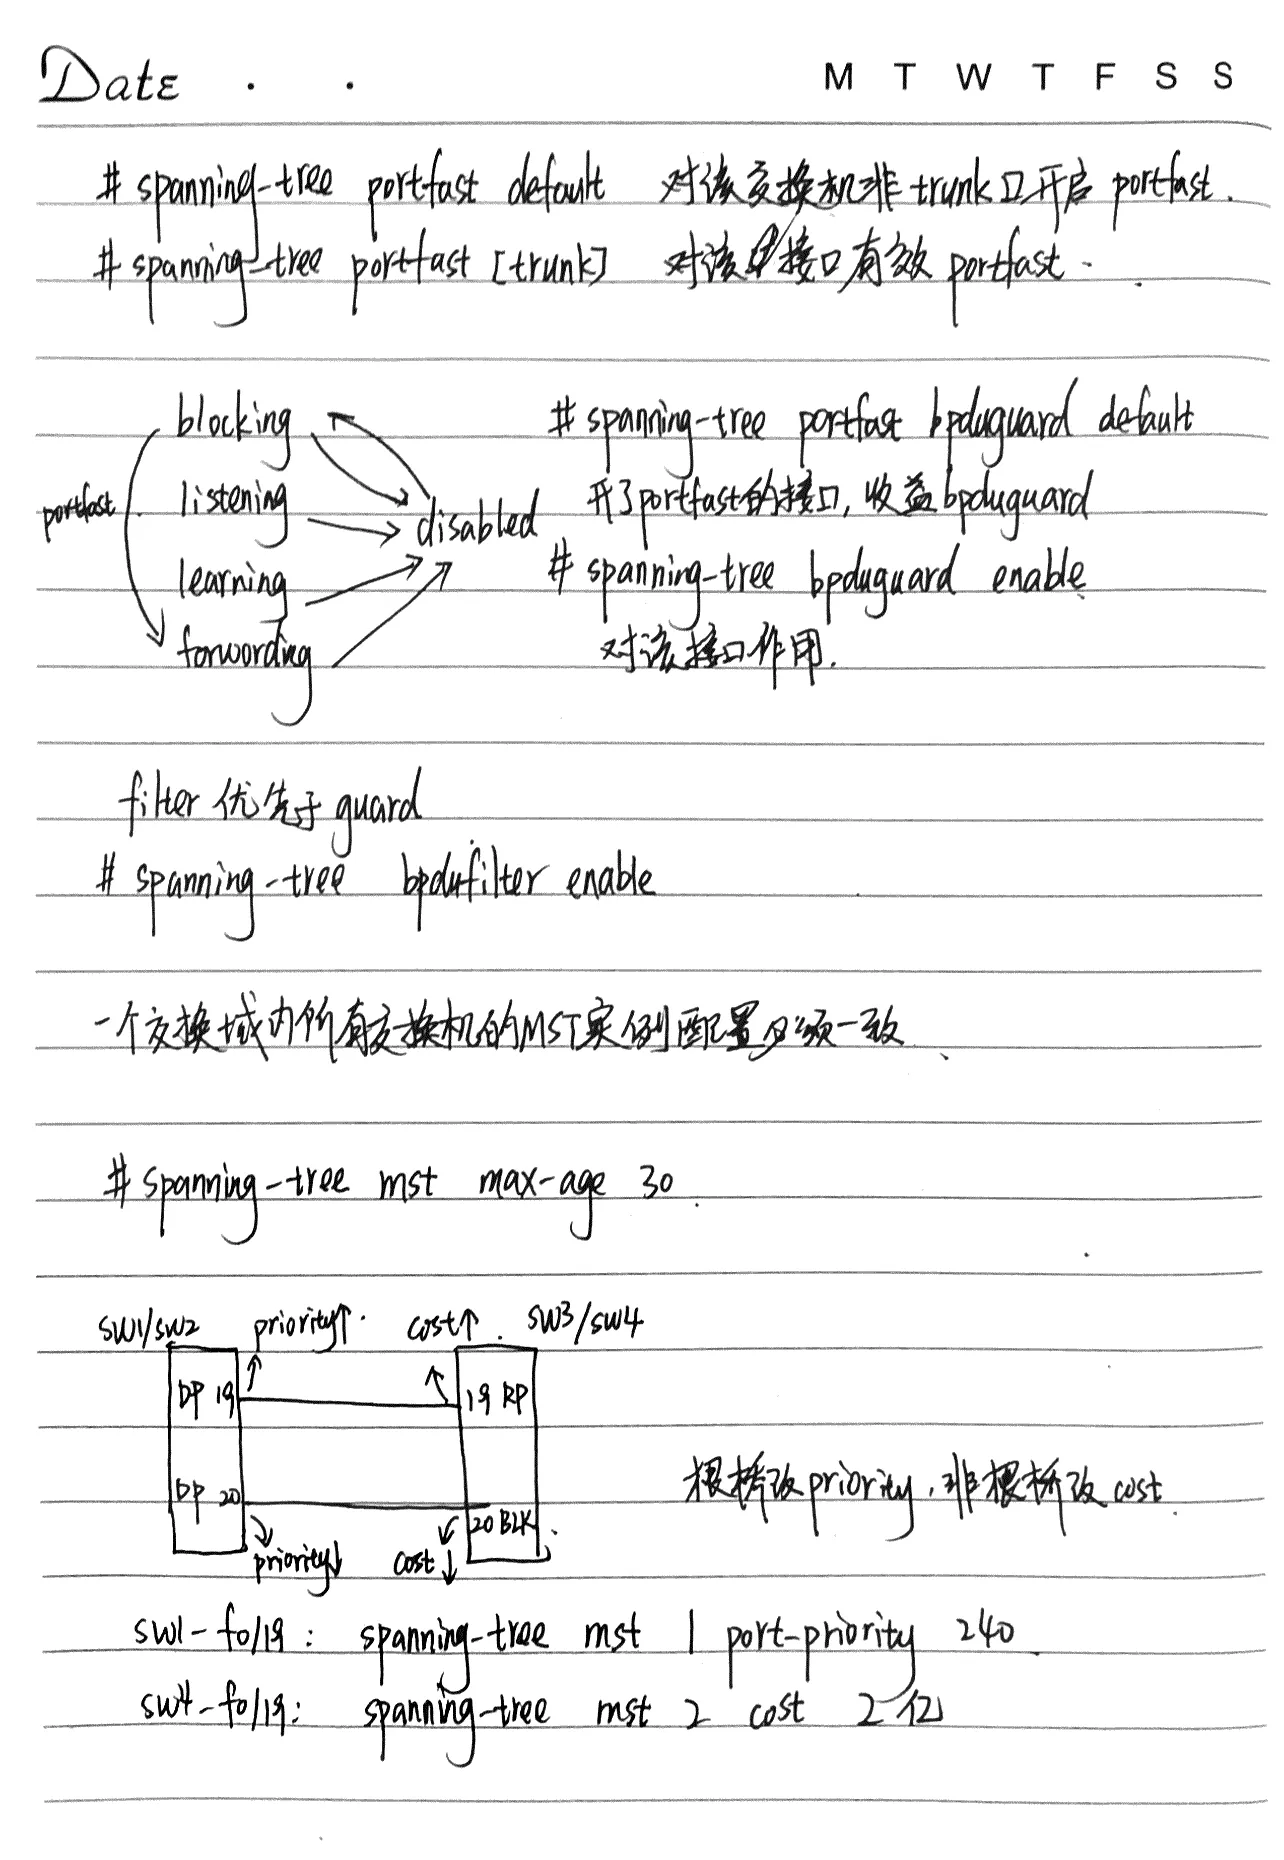 Date . . M T W T F S S
# spanning-tree portfast default 对该交换机非trunk口开启 portfast.
# spanning-tree portfast [trunk] 对该接口有效 portfast.
blocking
listening
learning
forwording
portfast
disabled
# spanning-tree portfast bpduguard default
开了portfast的接口, 收益bpduguard
# spanning-tree bpduguard enable
对该接口作用.
filter 优先于 guard
# spanning-tree bpdufilter enable
一个交换域内所有交换机的MST实例配置必须一致.
# spanning-tree mst max-age 30
SW1/SW2 priority↑ cost↑ SW3/SW4
DP 19 19 RP
DP 20 20 BLK
priority↓ cost↓
根桥改priority, 非根桥改 cost
SW1-f0/19: spanning-tree mst 1 port-priority 240
SW4-f0/19: spanning-tree mst 2 cost 2亿